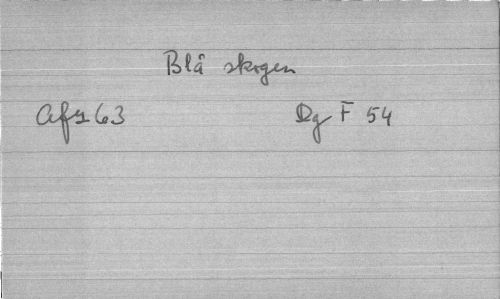 Blå skogen
Afz 63 Dg F 54